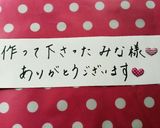 作って下さったみな様💗
ありがとうございます💗